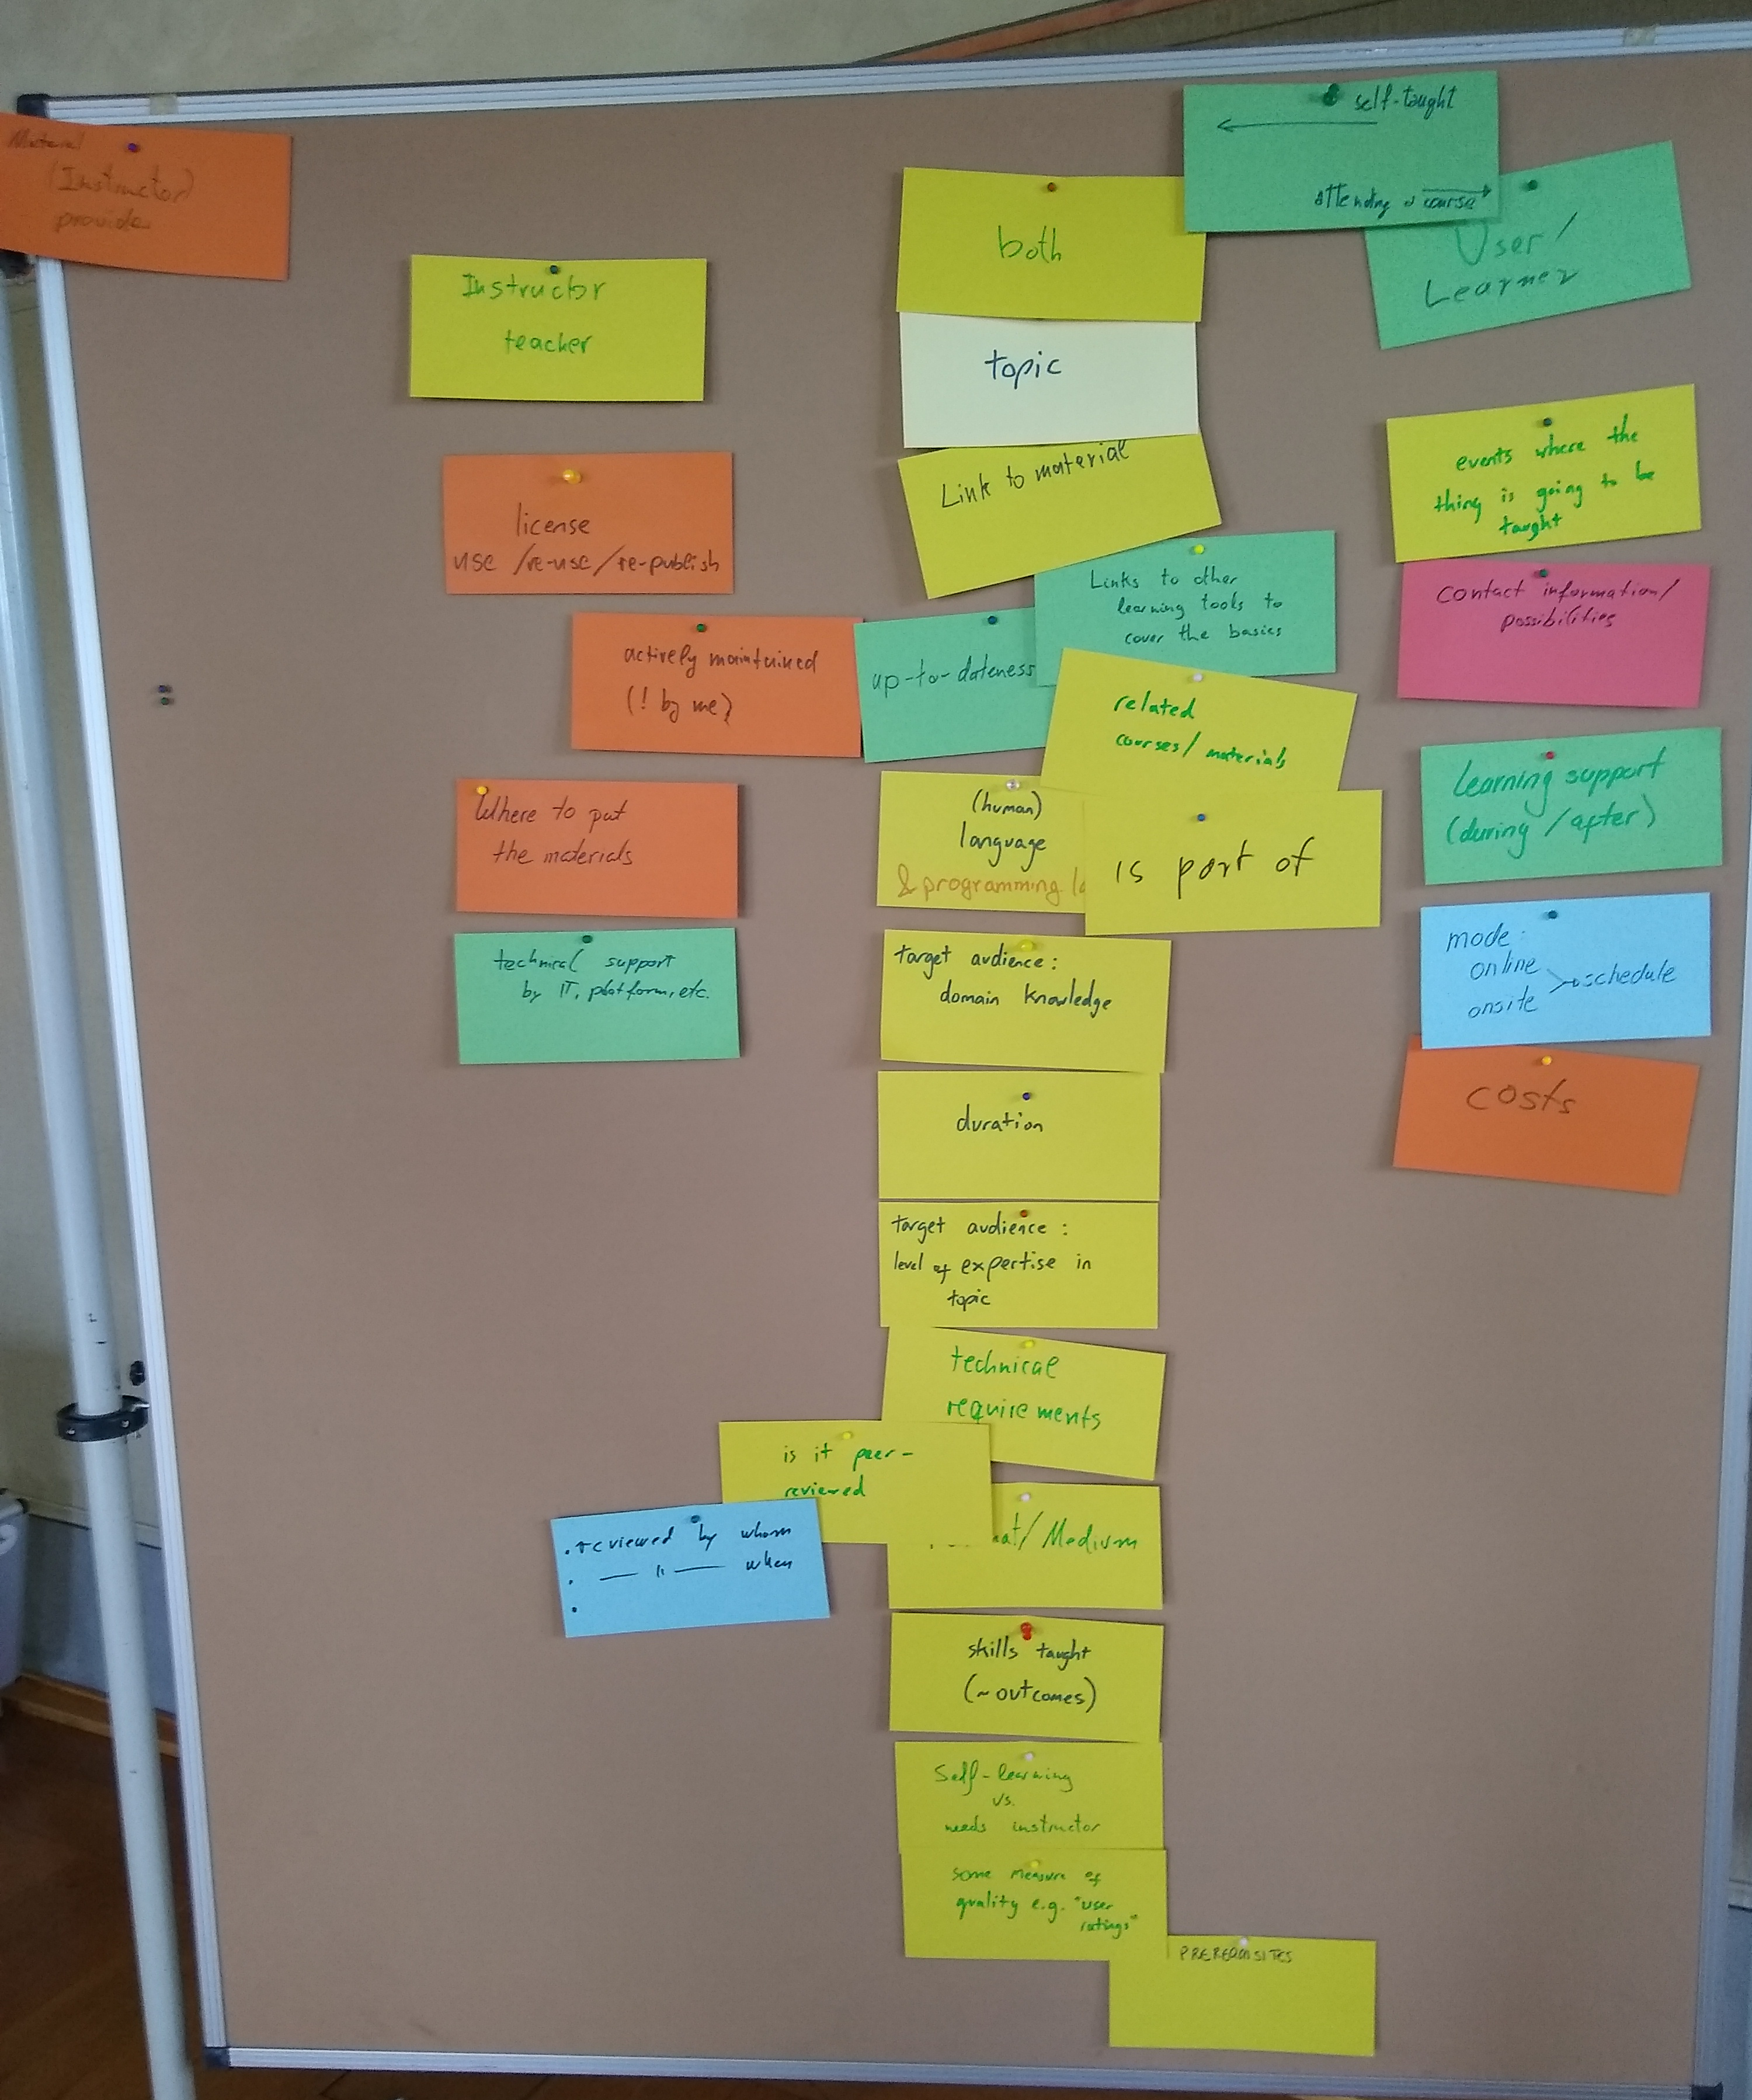 Material
(Instructor)
provide
Instructor
teacher
license
use /re-use/re-publish
actively maintained
(! by me)
Where to put
the materials
technical support
by IT, platform, etc.
both
topic
Link to material
Links to other
learning tools to
cover the basics
up-to-dateness
related
courses/ materials
(human)
language
& programming
is part of
target audience:
domain knowledge
duration
target audience:
level of expertise in
topic
technical
requirements
is it peer-
reviewed
. reviewed by whom
. — " — when
.
/ Medium
skills taught
(~outcomes)
Self-learning
vs.
needs instructor
some measure of
quality e.g. "user
ratings"
PREREQUISITES
self-taught
attending a course
User/
Learner
events where the
thing is going to be
taught
contact information/
possibilities
Learning support
(during /after)
mode:
online
onsite
schedule
costs